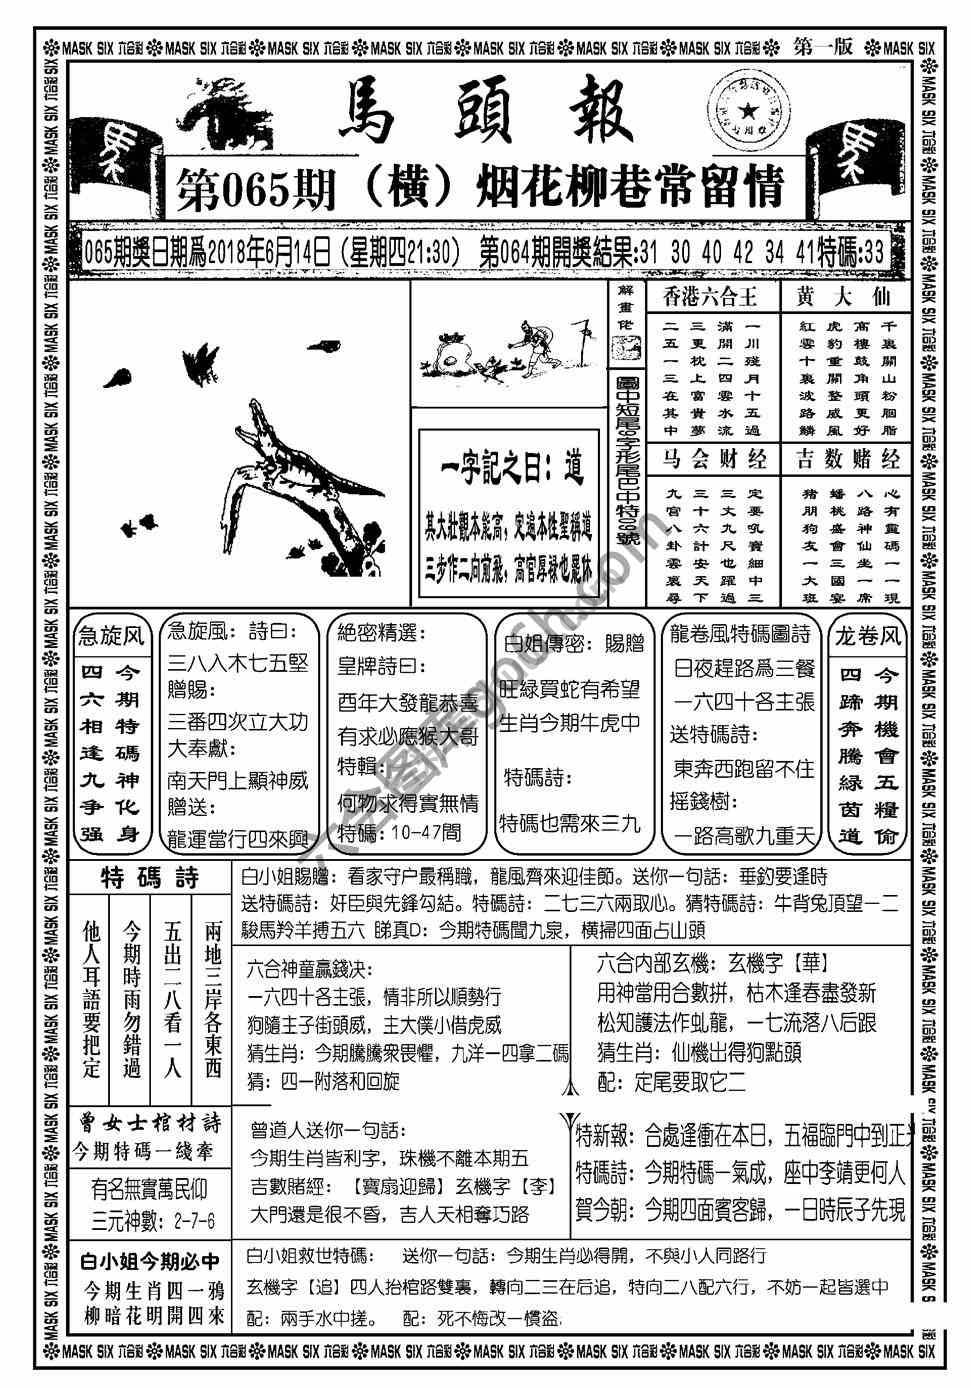 MASK SIX 六合彩 MASK SIX 六合彩 MASK SIX 六合彩 MASK SIX 六合彩 MASK SIX 六合彩 MASK SIX 六合彩 MASK SIX 六合彩 第一版 MASK SIX
馬頭報
第065期（横）烟花柳巷常留情
065期獎日期爲2018年6月14日（星期四21:30） 第064期開獎結果:31 30 40 42 34 41特碼:33
解畫佬
圖中短尾9字形尾巴中特09號
一字記之曰：道
其大壯觀本能高，定遍本性聖稱道
三步作二向前飛，高官厚禄也罷休
香港六合王
一川殘月十五過
滿開二四雲水流
三更枕上富貴夢
二五一三在其中
黄大仙
千裏關山粉胭脂
高樓鼓角頭更好
虎豹重關整威風
紅雲十裏波路鱗
马会财经
定要吼寶細中三
三丈九尺也躍過
三十六計安天下
九宫八卦雲裏尋
吉数赌经
心有靈碼一一現
八路神仙坐一席
蟠桃盛會三國宴
豬朋狗友一大班
急旋风
今期特碼神化身
四六相逢九争强
急旋風：詩曰：
三八入木七五堅
贈賜：
三番四次立大功
大奉獻：
南天門上顯神威
贈送：
龍運當行四來興
絕密精選：
皇牌詩曰：
酉年大發龍恭喜
有求必應猴大哥
特輯：
何物求得實無情
特碼：10-47間
白姐傳密：賜贈
旺緑買蛇有希望
生肖今期牛虎中
特碼詩：
特碼也需來三九
龍卷風特碼圖詩
日夜趕路爲三餐
一六四十各主張
送特碼詩：
東奔西跑留不住
摇錢樹：
一路高歌九重天
龙卷风
今期機會五糧偷
四蹄奔騰緑茵道
特碼詩
兩地三岸各東西
五出二八看一人
今期時雨勿錯過
他人耳語要把定
白小姐賜贈：看家守户最稱職，龍風齊來迎佳節。送你一句話：垂釣要逢時
送特碼詩：奸臣與先鋒勾結。特碼詩：二七三六兩取心。猜特碼詩：牛背兔頂望一二
駿馬羚羊搏五六 睇真D：今期特碼聞九泉，橫掃四面占山頭
六合神童贏錢决：
一六四十各主張，情非所以順勢行
狗隨主子街頭威，主大僕小借虎威
猜生肖：今期騰騰衆畏懼，九洋一四拿二碼
猜：四一附落和回旋
六合内部玄機：玄機字【華】
用神當用合數拼，枯木逢春盡發新
松知護法作虬龍，一七流落八后跟
猜生肖：仙機出得狗點頭
配：定尾要取它二
曾女士棺材詩
今期特碼一綫牽
有名無實萬民仰
三元神數：2-7-6
曾道人送你一句話：
今期生肖皆利字，珠機不離本期五
吉數賭經：【寶扇迎歸】玄機字【李】
大門還是很不昏，吉人天相奪巧路
特新報：合處逢衝在本日，五福臨門中到正
特碼詩：今期特碼一氣成，座中李靖更何人
賀今朝：今期四面賓客歸，一日時辰子先現
白小姐今期必中
今期生肖四一鴉
柳暗花明開四來
白小姐救世特碼： 送你一句話：今期生肖必得開，不與小人同路行
玄機字【追】四人抬棺路雙裏，轉向二三在后追，特向二八配六行，不妨一起皆選中
配：兩手水中搓。 配：死不悔改一慣盗.
MASK SIX 六合彩 MASK SIX 六合彩 MASK SIX 六合彩 MASK SIX 六合彩 MASK SIX 六合彩 MASK SIX 六合彩 MASK SIX 六合彩 MASK SIX 六合彩 MASK SIX